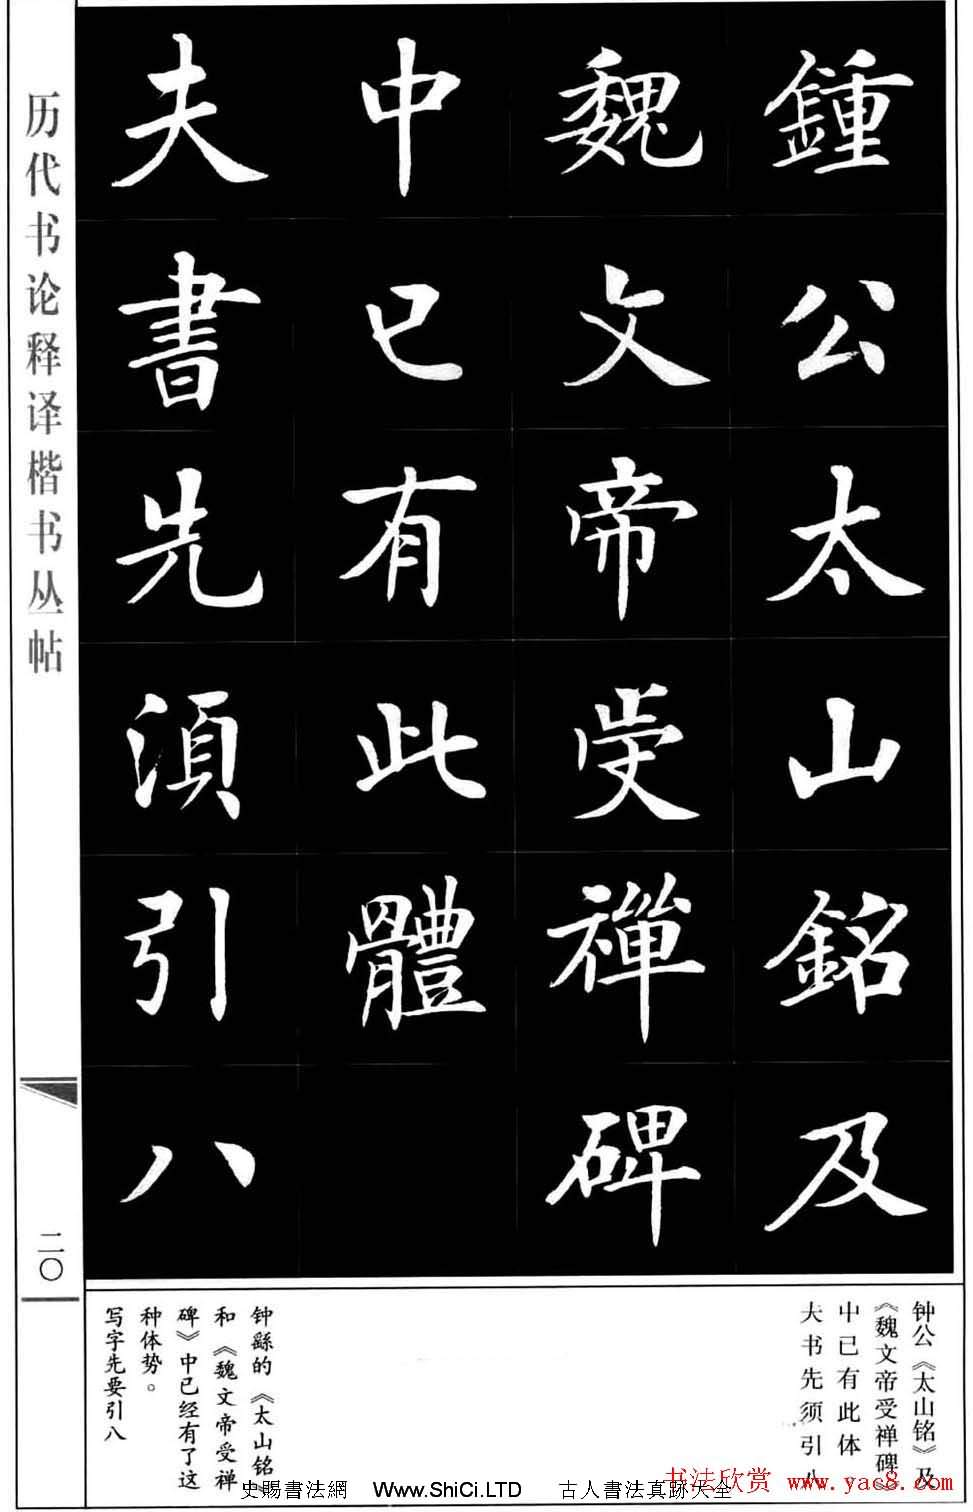 鍾公太山銘及
魏文帝受禪碑
中已有此體
夫書先須引八
历代书论释译楷书丛帖
二〇
钟公《太山铭》及
《魏文帝受禅碑》
中已有此体
夫书先须引八
钟繇的《太山铭》
和《魏文帝受禅
碑》中已经有了这
种体势。
写字先要引八
史賜書法網 Www.ShiCi.LTD 古人書法真跡大全
书法欣赏 www.yac8.com